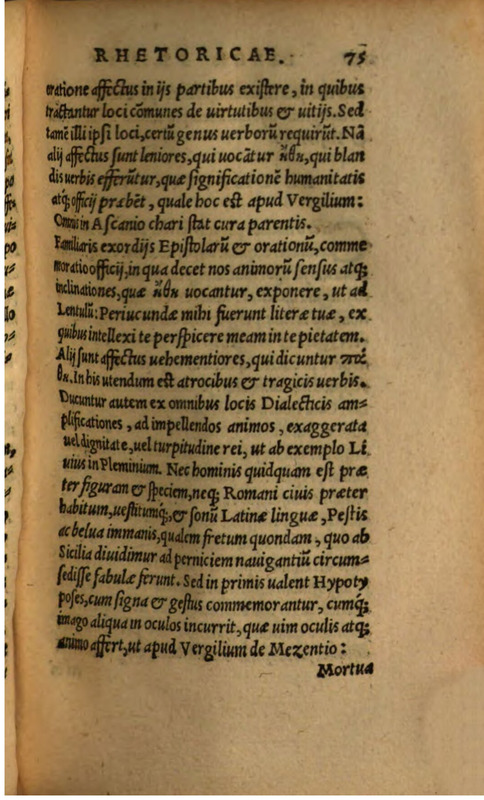 RHETORICAE. 75
oratione affectus in ijs partibus existere, in quibus
tractantur loci cōmunes de uirtutibus & uitijs. Sed
tamē illi ipsi loci, certū genus uerborū requirūt. Nā
alij affectus sunt leniores, qui uocātur ἤθη, qui blan
dis uerbis efferūtur, quæ significationē humanitatis
atq; officij præbēt, quale hoc est apud Vergilium:
Omnis in Ascanio chari stat cura parentis.
Familiaris exordijs Epistolarū & orationū, comme
moratio officij, in qua decet nos animorū sensus atq;
inclinationes, quæ ἤθη uocantur, exponere, ut ad
Lentulū: Periucundæ mihi fuerunt literæ tuæ, ex
quibus intellexi te perspicere meam in te pietatem.
Alij sunt affectus uehementiores, qui dicuntur πά⸗
θη. In his utendum est atrocibus & tragicis uerbis.
Ducuntur autem ex omnibus locis Dialecticis am⸗
plificationes, ad impellendos animos, exaggerata
uel dignitate, uel turpitudine rei, ut ab exemplo Li
uius in Pleminium. Nec hominis quidquam est præ
ter figuram & speciem, neq; Romani ciuis præter
habitum, uestitumq;, & sonū Latinæ linguæ, Pestis
ac belua immanis, qualem fretum quondam, quo ab
Sicilia diuidimur ad perniciem nauigantiū circum⸗
sedisse fabulæ ferunt. Sed in primis ualent Hypoty
poses, cum signa & gestus commemorantur, cumq;
imago aliqua in oculos incurrit, quæ uim oculis atq;
animo affert, ut apud Vergilium de Mezentio:
Mortua